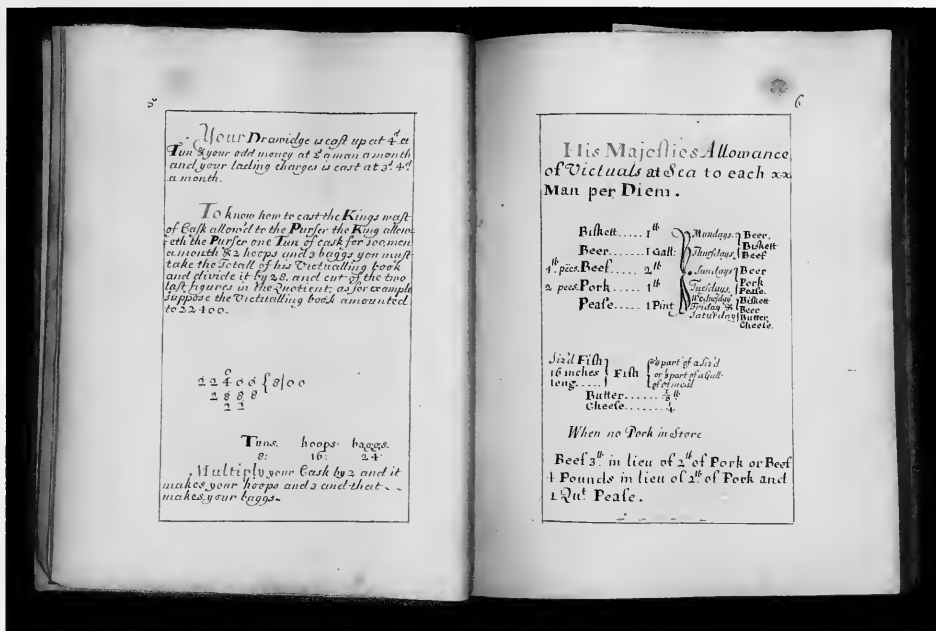 5
Your Drawidge is cast up at 4d a
Tun & your odd money at 2d a man a month
and your lading charges is cast at 3s. 4d.
a month.
To know how to cast the Kings wast
of Cask allow'd to the Purser the King allow-
eth the Purser one Tun of cask for 100 men
a month & 2 hoops and 3 baggs you must
take the Totall of his Victualling book
and divide it by 28. and cut of the two
last figures in the Quotient, as for example
suppose the Victualling book amounted
to 22400.
0
22400 { 8|00
2888
22
Tuns. hoops. baggs.
8: 16: 24
Multiply your Cask by 2 and it
makes your hoops and 3 and that
makes your baggs.
6
His Majesties Allowance
of Victuals at Sea to each
Man per Diem.
Biskett..... 1lb
Beer..... 1 Gall:
4lb. pics. Beef..... 2lb
2 pecs. Pork..... 1lb
Pease..... 1 Pint
Mundays. Thursdays. } Beer. Biskett Beef
Sundays Tuesdays. } Beer Pork Pease.
Wednesday Friday & Saturday } Biskett Beer Butter Cheese.
Siz'd Fish
16 inches } Fish { part of a Siz'd
long..... or 1/8 part of a Gall.
of otmeal
Butter....... 1/8 lb
Cheese....... 1/4
When no Pork in Store
Beef 3lb. in lieu of 2lb of Pork or Beef
4 Pounds in lieu of 2lb. of Pork and
1 Qut. Pease.